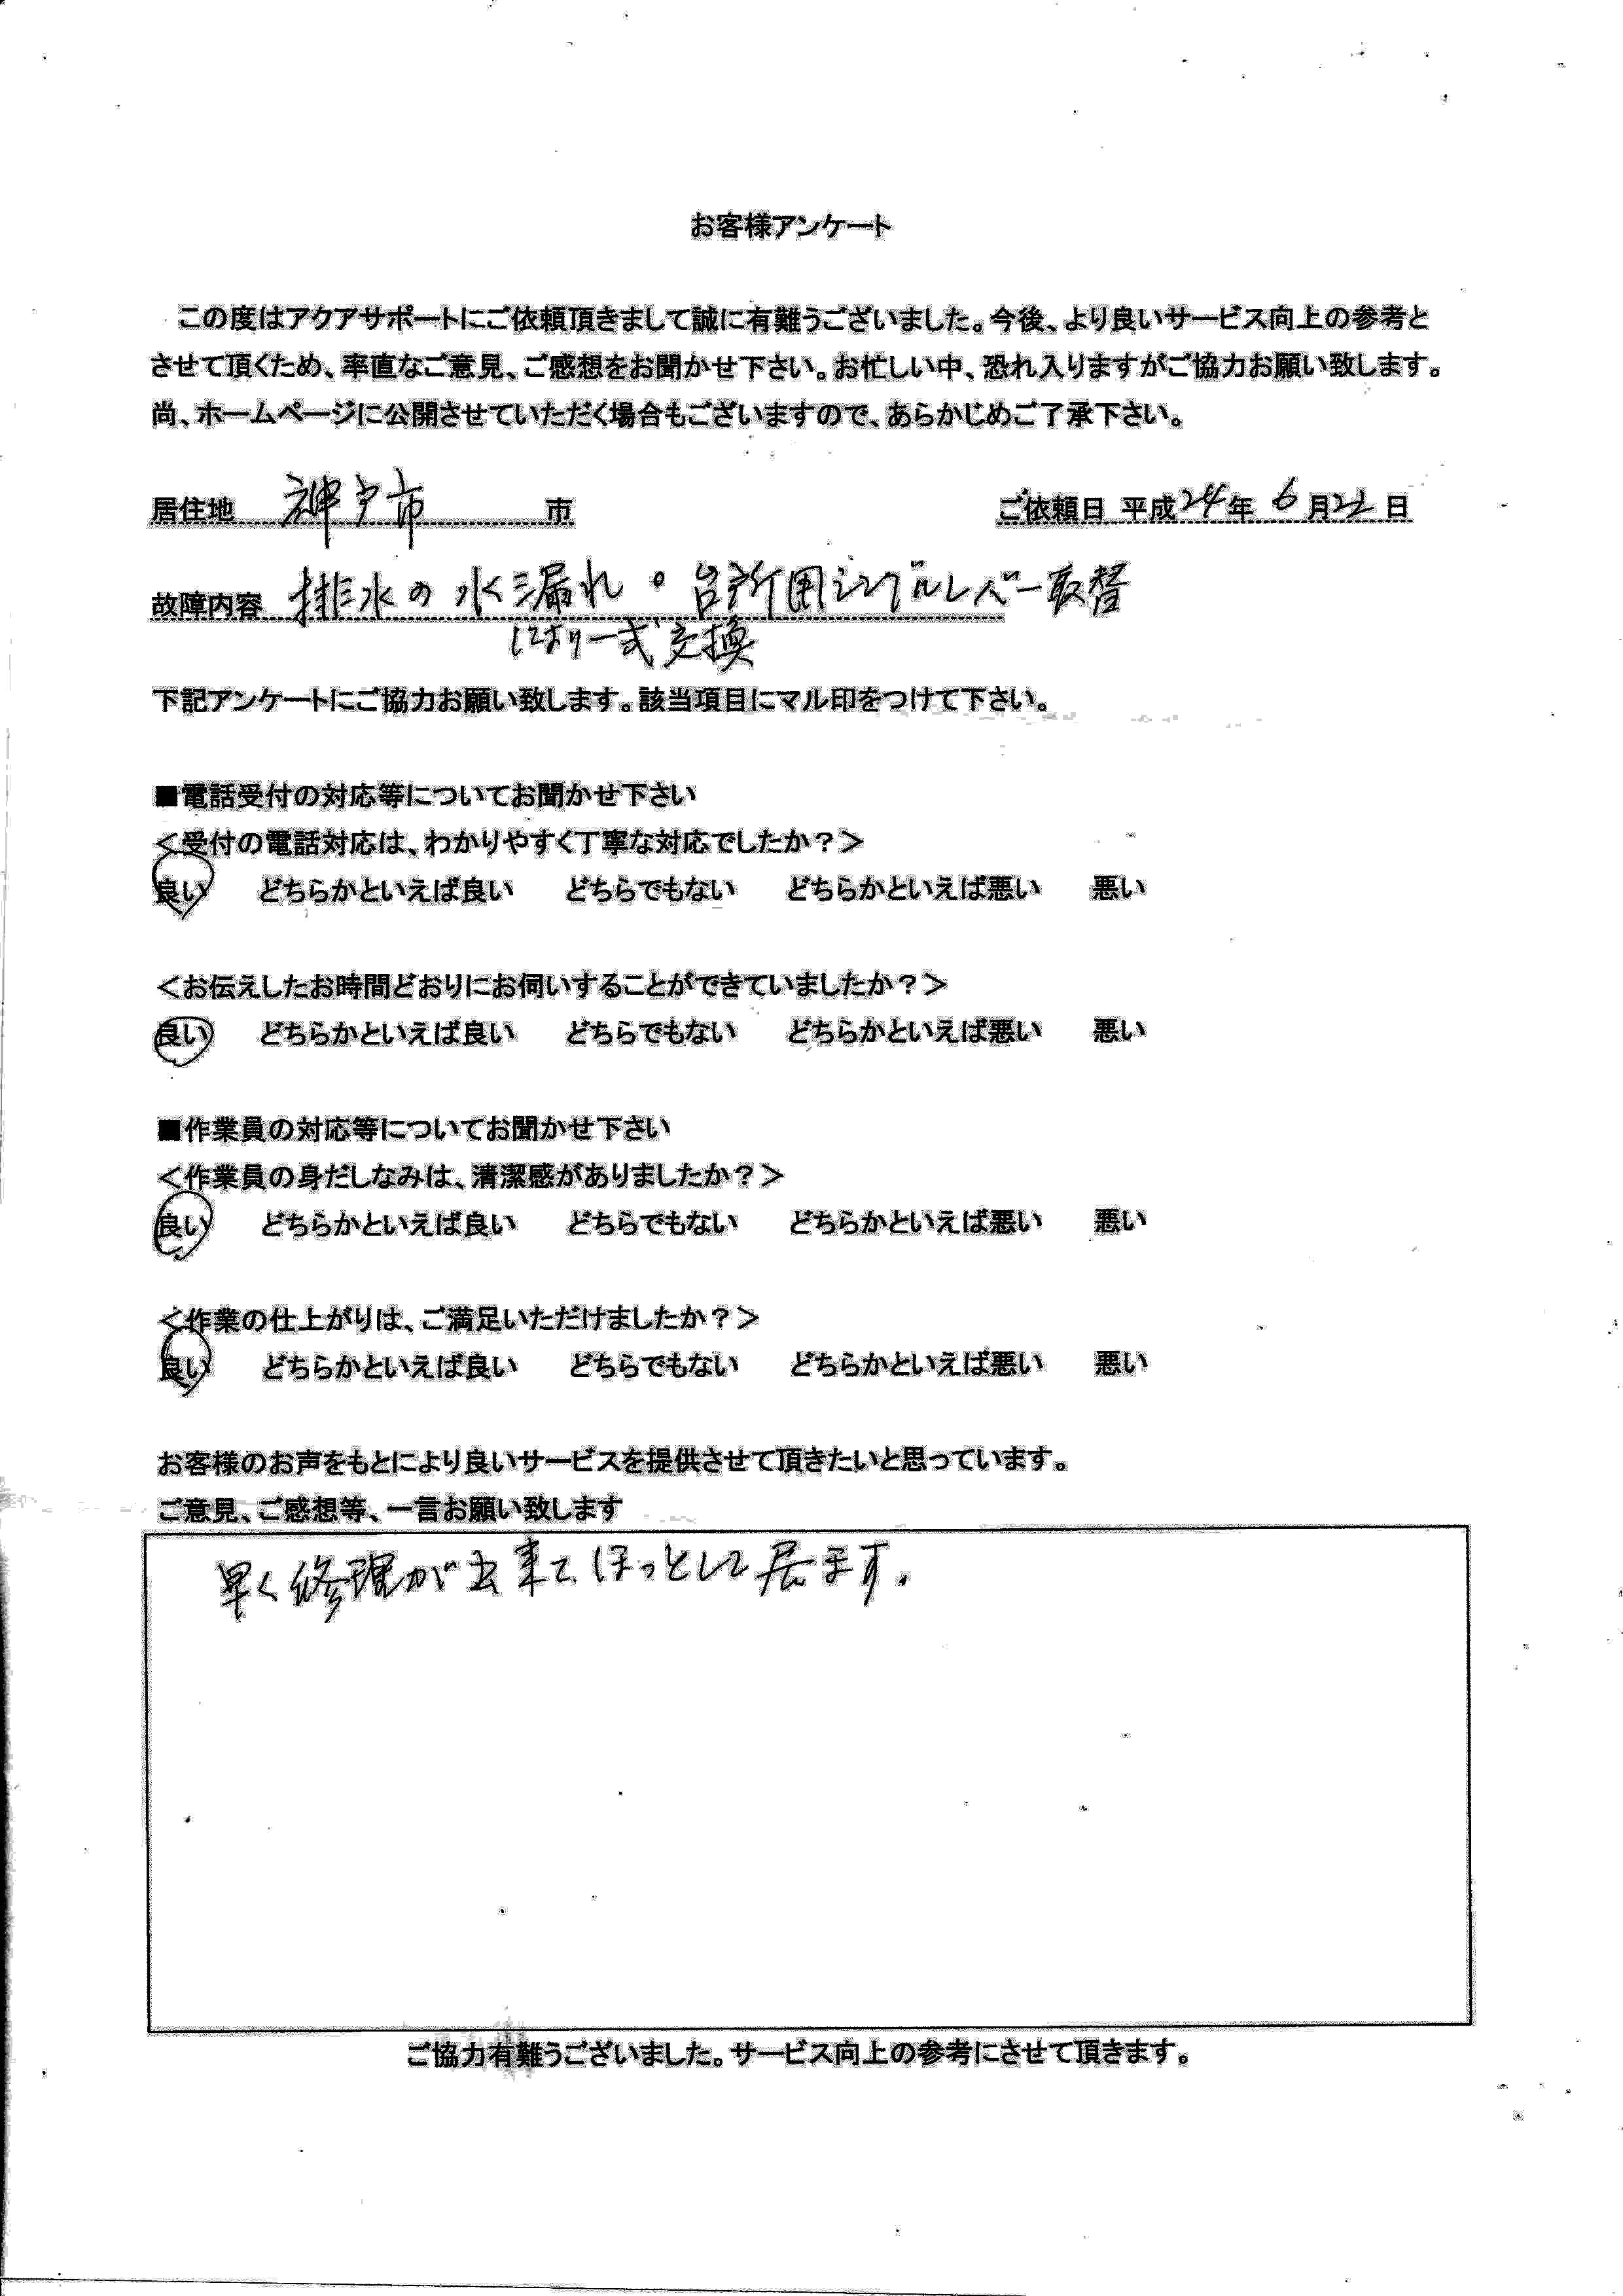 お客様アンケート
この度はアクアサポートにご依頼頂きまして誠に有難うございました。今後、より良いサービス向上の参考と
させて頂くため、率直なご意見、ご感想をお聞かせ下さい。お忙しい中、恐れ入りますがご協力お願い致します。
尚、ホームページに公開させていただく場合もございますので、あらかじめご了承下さい。
居住地 神戸市 市 ご依頼日 平成24年 6月22日
故障内容 排水の水漏れ。台所用シングルレバー取替
により一式交換
下記アンケートにご協力お願い致します。該当項目にマル印をつけて下さい。
■電話受付の対応等についてお聞かせ下さい
<受付の電話対応は、わかりやすく丁寧な対応でしたか？>
良い どちらかといえば良い どちらでもない どちらかといえば悪い 悪い
<お伝えしたお時間どおりにお伺いすることができていましたか？>
良い どちらかといえば良い どちらでもない どちらかといえば悪い 悪い
■作業員の対応等についてお聞かせ下さい
<作業員の身だしなみは、清潔感がありましたか？>
良い どちらかといえば良い どちらでもない どちらかといえば悪い 悪い
<作業の仕上がりは、ご満足いただけましたか？>
良い どちらかといえば良い どちらでもない どちらかといえば悪い 悪い
お客様のお声をもとにより良いサービスを提供させて頂きたいと思っています。
ご意見、ご感想等、一言お願い致します
早く修理が出来てほっとして居ます。
ご協力有難うございました。サービス向上の参考にさせて頂きます。